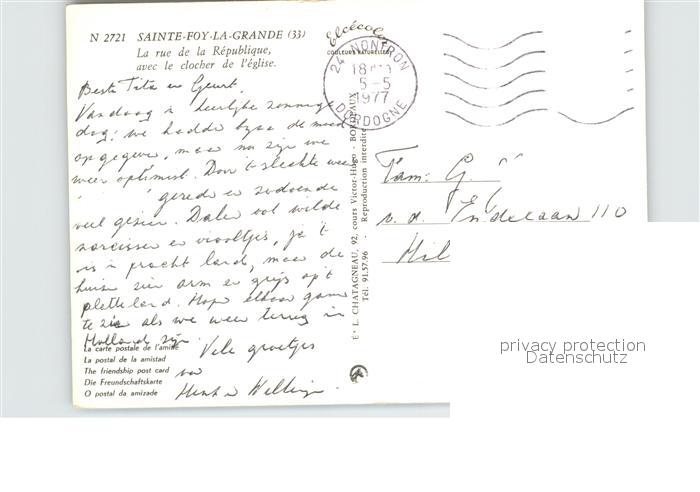 N 2721 SAINTE-FOY-LA-GRANDE (33)
La rue de la République,
avec le clocher de l'église.
Elcécolor
COULEURS NATURELLES
24 NONTRON
18
5-5
1977
DORDOGNE
Beste Tita en Geurt.
Vandaag 'n heerlijke zonnige
dag; we hadden bijna de moed
opgegeven, maar nu zijn we
weer optimist. Door 't slechte weer
gereden en zodoende
veel gezien. Dalen vol wilde
narcissen en viooltjes, ja 't
is 'n pracht land, maar de
huizen zien arm en grijs op 't
platteland. Hoop elkaar gauw
te zien als we weer terug in
Holland zijn.
Vele groetjes
van
Henk en
Fam: G
v. d. Endelaan 110
Hil
Es L. CHATAGNEAU, 92, cours Victor-Hugo - BORDEAUX
Tél. 91.57.96 - Reproduction interdite
La carte postale de l'amitié
La postal de la amistad
The friendship post card
Die Freundschaftskarte
O postal da amizade
privacy protection
Datenschutz